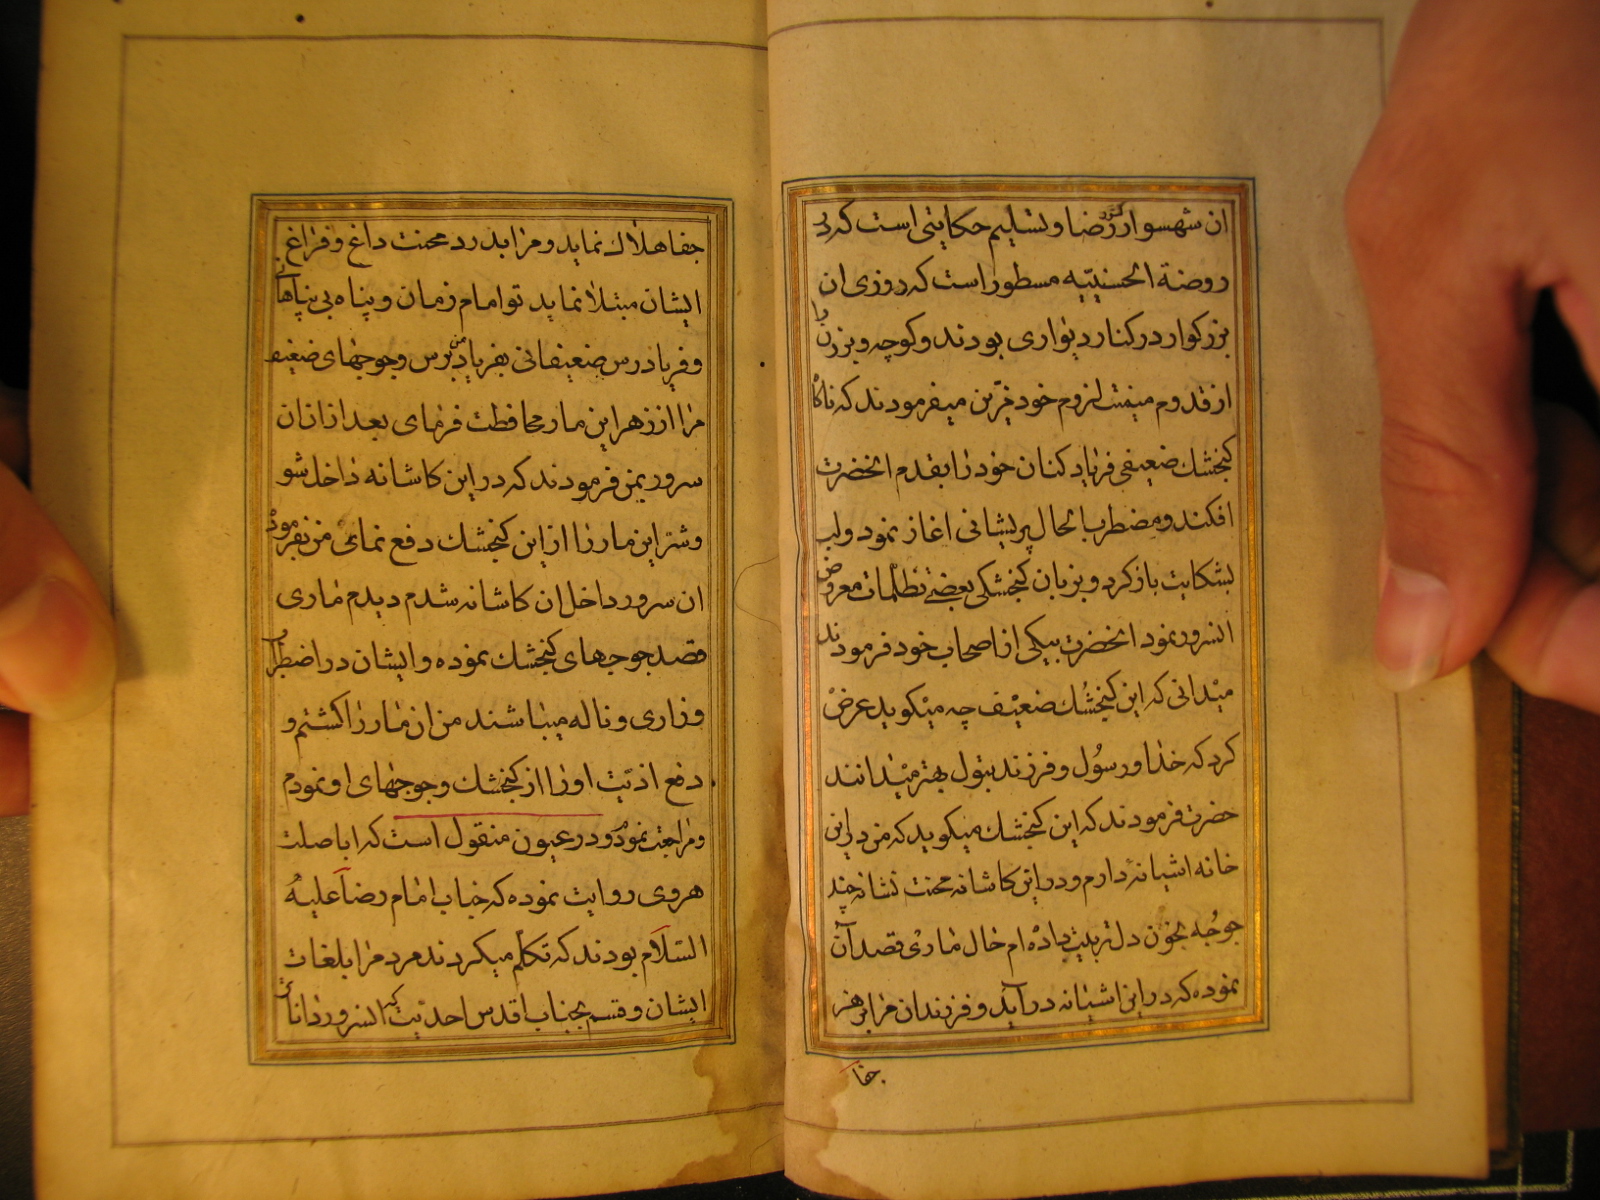 ان شهسوار کشور رضا و تسلیم حکایتی است که در
روضة الحسینیّیه مسطور است که روزی ان
بزرکوار در کنار دیواری بودند و کوچه و برزن را
از قدوم میمنت لزوم خود مزّین میفرمودند که ناکاه
کنجشك ضعیفی فریاد کنان خود را بقدم انحضرت
افکند و مضطرب الحال پریشانی اغاز نمود و لب
بشکایت باز کرد و بزبان کنجشکی بعضی تظلّمات معروض
انسرور نمود انحضرت بیکی از اصحاب خود فرمودند
میدانی که این کنجشك ضعیف چه میکوید عرض
کرد که خدا و رسول و فرزند بتول بهتر میدانند
حضرت فرمودند که این کنجشك میکوید که من در این
خانه اشیانهٔ دارم و در این کاشانه محنت نشانه چند
جوجه بخون دل تربیت داده ام حال ماری قصد آن
نموده که در این اشیانه در آید و فرزندان مرا بزهر
جفا
جفا هلاك نماید و مرا بدرد محنت داغ و فراغ
ایشان مبتلا نماید تو امام زمان و پناه بی پناهانی
و فریاد رس ضعیفانی بفریاد من برس و جوجهای ضعیف
مرا از زهر این مار محافظت فرمای بعد از ان ان
سرور بمن فرمودند که در این کاشانه داخل شو
و شر این مار را از این کنجشك دفع نمای من بفرمودهٔ
ان سرور داخل ان کاشانه شدم دیدم ماری
قصد جوجهای کنجشك نموده و ایشان در اضطراب
و زاری و ناله میباشند من ان مار را کشتم و
دفع اذیّت او را از کنجشك و جوجهای او نمودم
و مراجعت نمودم و در عیون منقول است که اباصلت
هروی روایت نموده که جناب امام رضا علیه
السّلام بودند که تکلّم میکردند مردم را بلغات
ایشان و قسم بجناب اقدس احدیّت که انسرور دانای